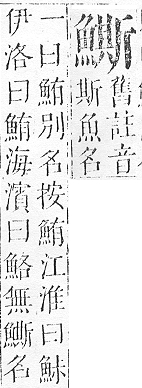 䲉舊註音
斯魚名
一曰鮪別名按鮪江淮曰鮇
伊洛曰鮪海濱曰鮥無䲉名